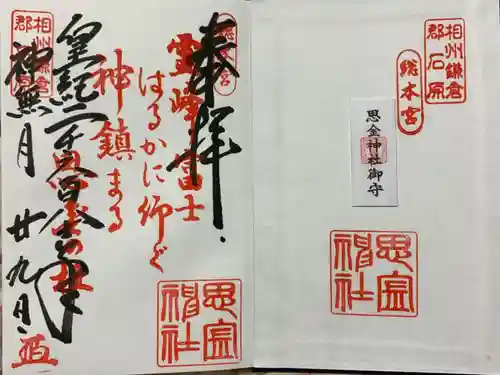 奉拝
総本宮
霊峰富士
はるかに仰ぐ
神鎮まる
思金の社
皇紀二千六百年
相州鎌倉
郡石原
神無月廿九日
思金
神社
相州鎌倉
郡石原
総本宮
思金神社御守
思金
神社